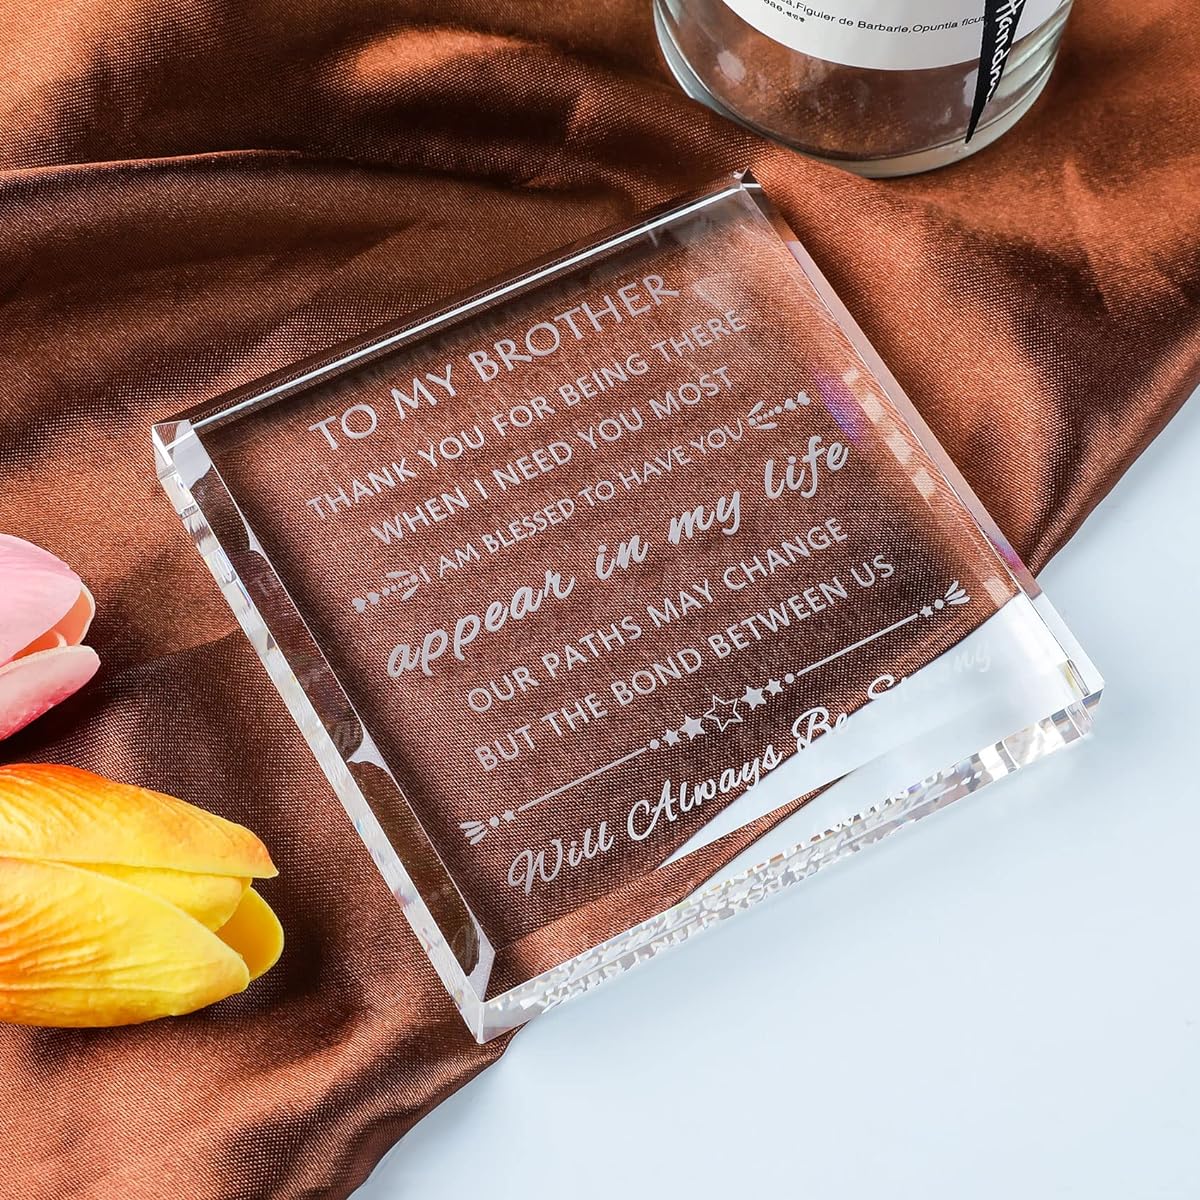 Figuier de Barbarie,Opuntia ficus
TO MY BROTHER
THANK YOU FOR BEING THERE
WHEN I NEED YOU MOST
I AM BLESSED TO HAVE YOU
appear in my life
OUR PATHS MAY CHANGE
BUT THE BOND BETWEEN US
Will Always Be Strong